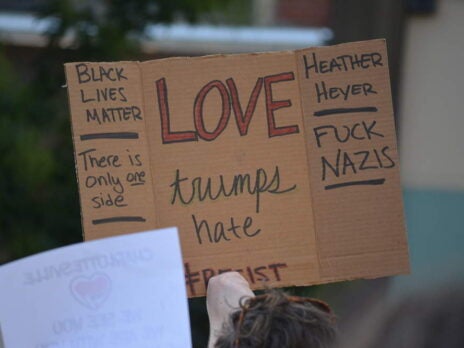 BLACK
LIVES
MATTER
There is
only one
side
LOVE
trumps
hate
#RESIST
HEATHER
HEYER
FUCK
NAZIS
CHARLOTTESVILLE
WE SEE YOU